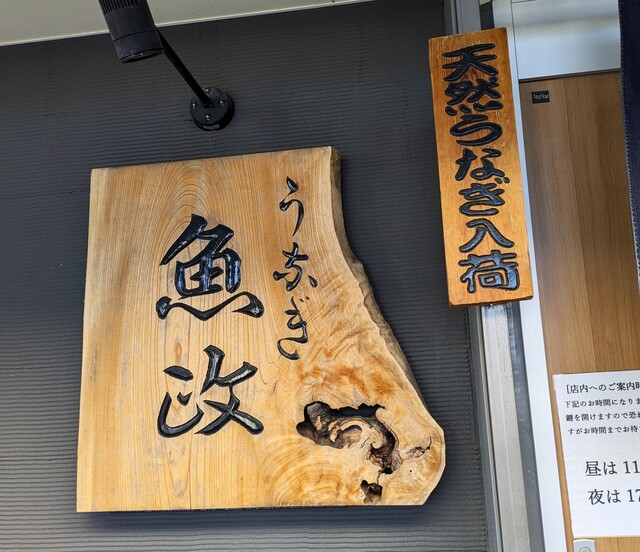 うなぎ
魚政
天然うなぎ入荷
[店内へのご案内時
下記のお時間になりま
鍵を開けますので恐れ
すがお時間までお待
昼は 11
夜は 17